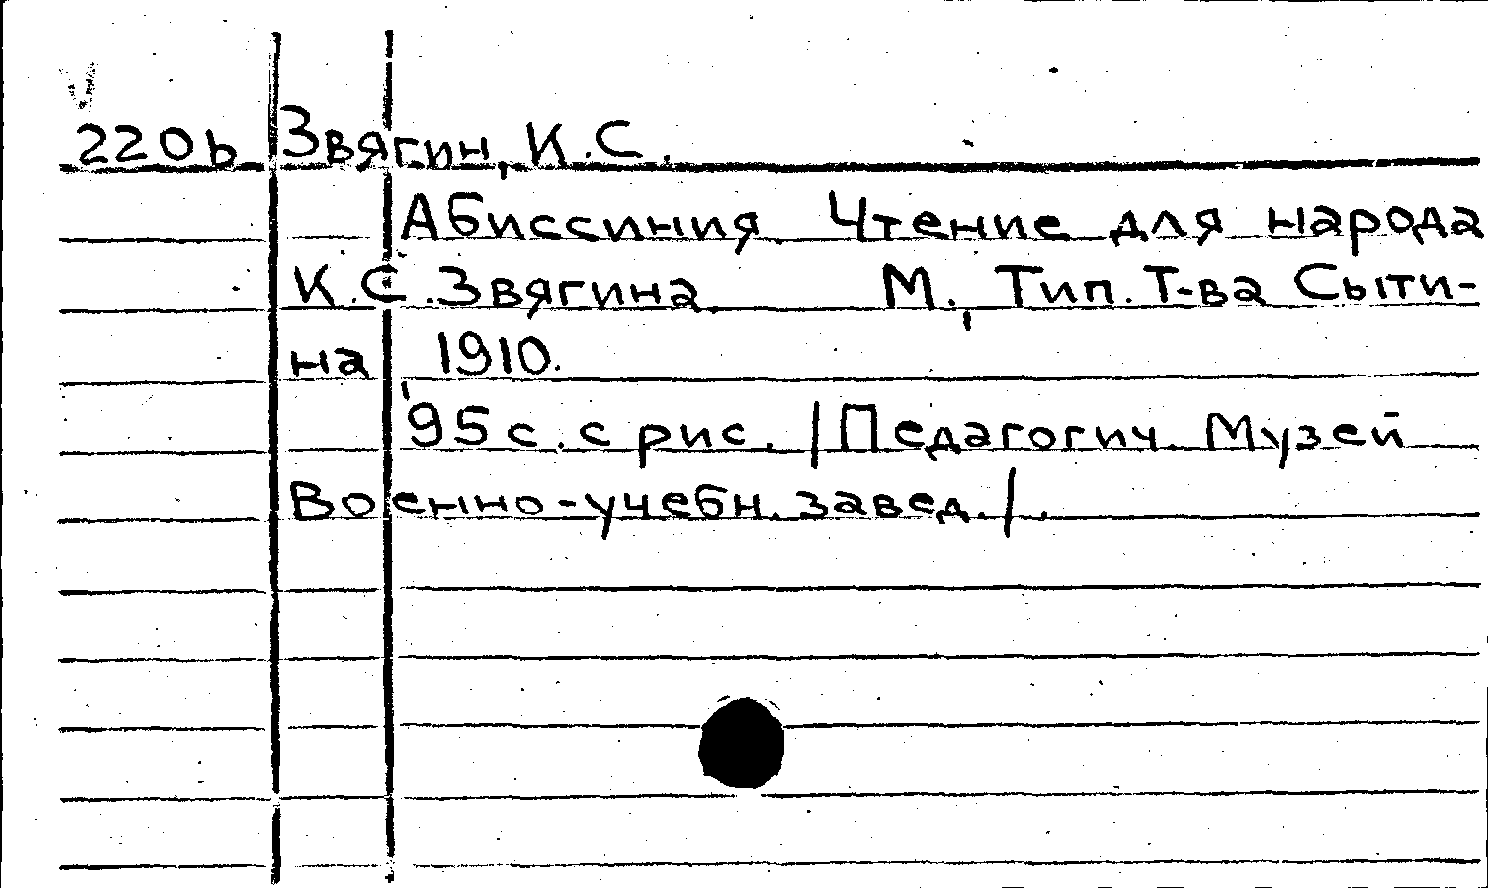 220b Звягин, К.С.
Абиссиния. Чтение для народа
К.С.Звягина. М., Тип. Т-ва Сыти-
на, 1910.
95 с. с рис. /Педагогич. Музей
Военно-учебн. завед./.